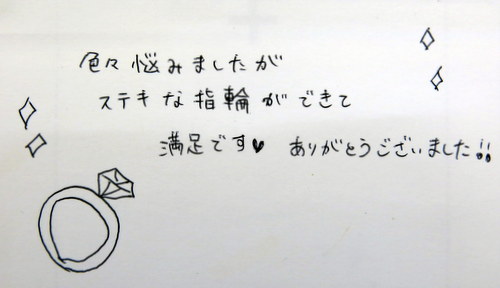 色々悩みましたが
ステキな指輪ができて
満足です♥ ありがとうございました!!